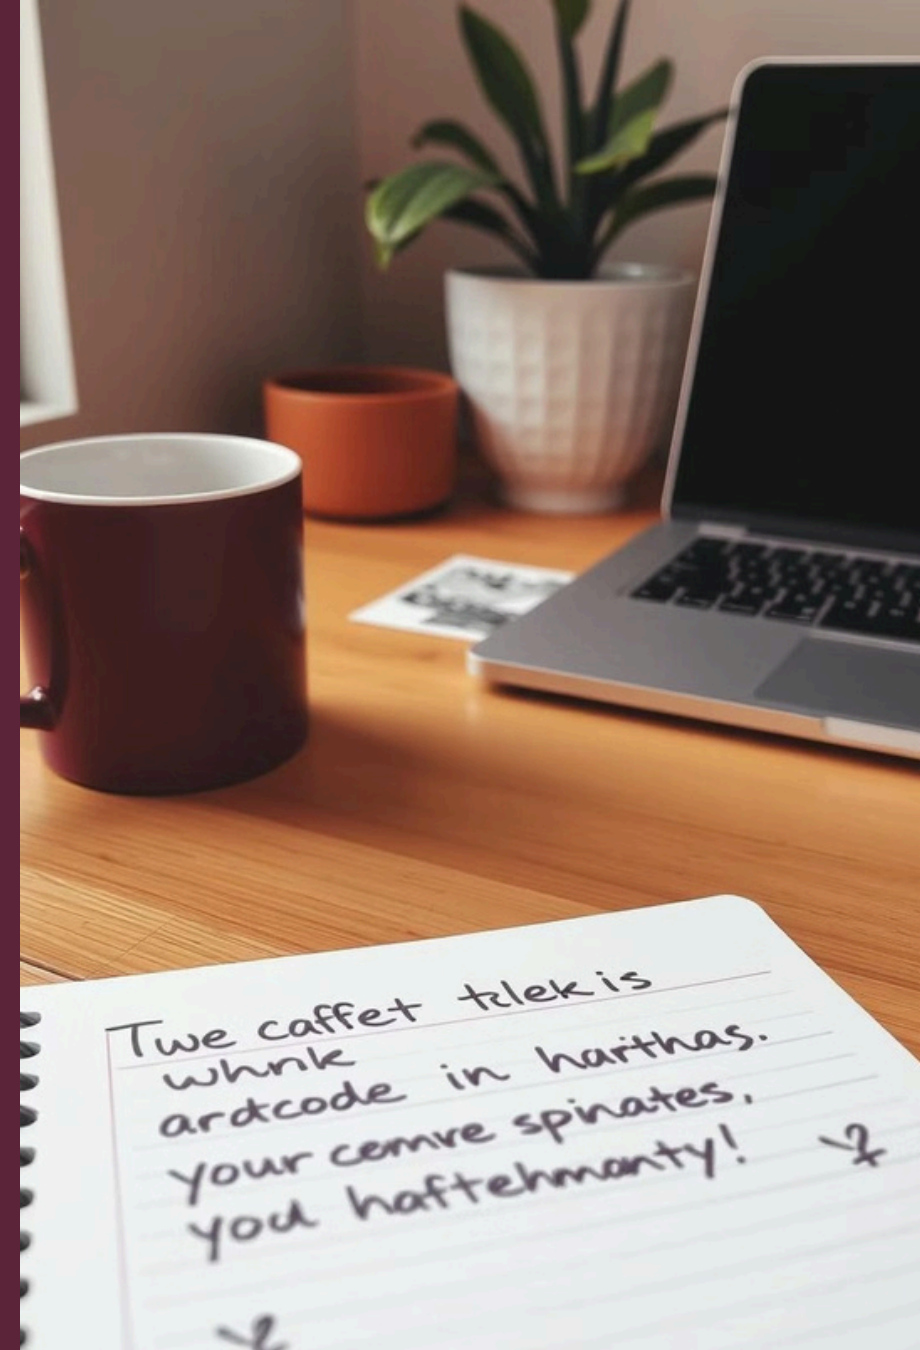 Twe caffet tclek is
whnk
ardcode in harthas.
your cemre spinates,
you haftehmanty!